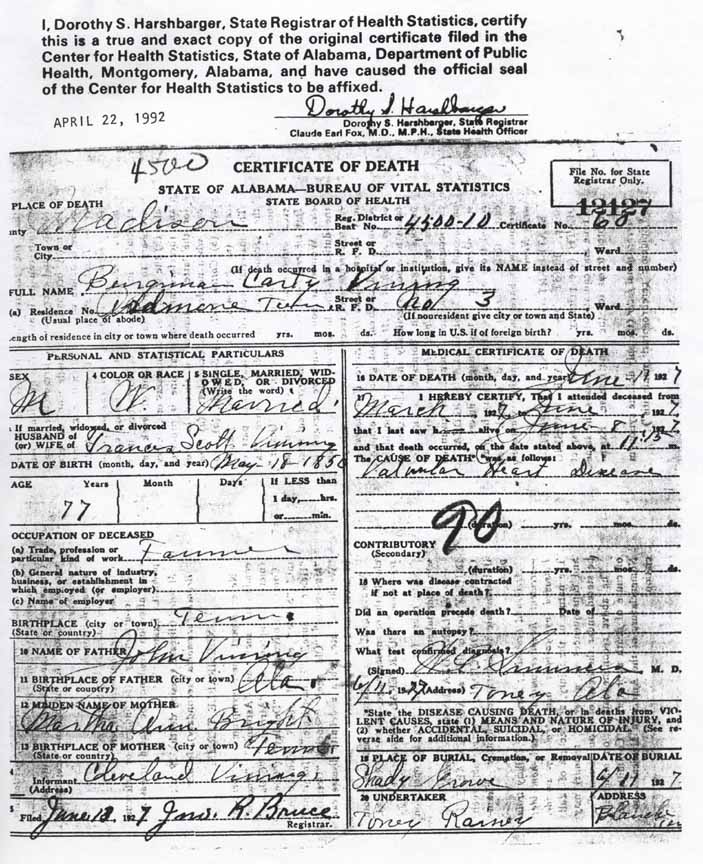 I, Dorothy S. Harshbarger, State Registrar of Health Statistics, certify
this is a true and exact copy of the original certificate filed in the
Center for Health Statistics, State of Alabama, Department of Public
Health, Montgomery, Alabama, and have caused the official seal
of the Center for Health Statistics to be affixed.
Dorothy S. Harshbarger
APRIL 22, 1992
Dorothy S. Harshbarger, State Registrar
Claude Earl Fox, M.D., M.P.H., State Health Officer
4500 CERTIFICATE OF DEATH
STATE OF ALABAMA—BUREAU OF VITAL STATISTICS
STATE BOARD OF HEALTH
File No. for State
Registrar Only.
12127
PLACE OF DEATH
nty Madison Reg. District or Beat No. 4500-10 Certificate No. 60
Town or City Street or R. F. D. Ward
(If death occurred in a hospital or institution, give its NAME instead of street and number)
FULL NAME Vining
(a) Residence No. Street or R. F. D. No 3 Ward
(Usual place of abode) (If nonresident give city or town and State)
ength of residence in city or town where death occurred yrs. mos. ds. How long in U.S. if of foreign birth? yrs. mos. ds.
PERSONAL AND STATISTICAL PARTICULARS
SEX M
4 COLOR OR RACE W
5 SINGLE, MARRIED, WIDOWED, OR DIVORCED
(Write the word) Married
If married, widowed, or divorced
HUSBAND of
(or) WIFE of Frances Scott Vining
DATE OF BIRTH (month, day, and year) May 18 1850
AGE Years Month Days If LESS than
77 1 day, hrs.
or min.
OCCUPATION OF DECEASED
(a) Trade, profession or
particular kind of work Farmer
(b) General nature of industry,
business, or establishment in
which employed (or employer)
(c) Name of employer
BIRTHPLACE (city or town) Tenn.
(State or country)
10 NAME OF FATHER John Vining
11 BIRTHPLACE OF FATHER (city or town) Ala.
(State or country)
12 MAIDEN NAME OF MOTHER
Martha Ann Bright
13 BIRTHPLACE OF MOTHER (city or town) Tenn
(State or country)
Informant Cleveland Vining
(Address)
Filed June 12 1927 Jno. R. Bruce
Registrar.
MEDICAL CERTIFICATE OF DEATH
16 DATE OF DEATH (month, day, and year) June 11 1927
17 I HEREBY CERTIFY, That I attended deceased from
March 1927 to June 1927,
that I last saw h alive on June 8 1927
and that death occurred, on the date stated above, at m.
The CAUSE OF DEATH* was as follows:
Valvular Heart Disease
90
(duration) yrs. mos. ds.
CONTRIBUTORY
(Secondary)
(duration) yrs. mos. ds.
18 Where was disease contracted
if not at place of death?
Did an operation precede death? Date of
Was there an autopsy?
What test confirmed diagnosis?
(Signed) M. D.
6/11 1927 (Address) Toney Ala
*State the DISEASE CAUSING DEATH, or in deaths from VIO-
LENT CAUSES, state (1) MEANS AND NATURE OF INJURY, and
(2) whether ACCIDENTAL, SUICIDAL, or HOMICIDAL. (See re-
verse side for additional information.)
19 PLACE OF BURIAL, Cremation, or Removal DATE OF BURIAL
Shady Grove 6/11 1927
20 UNDERTAKER ADDRESS
Toney Rainey